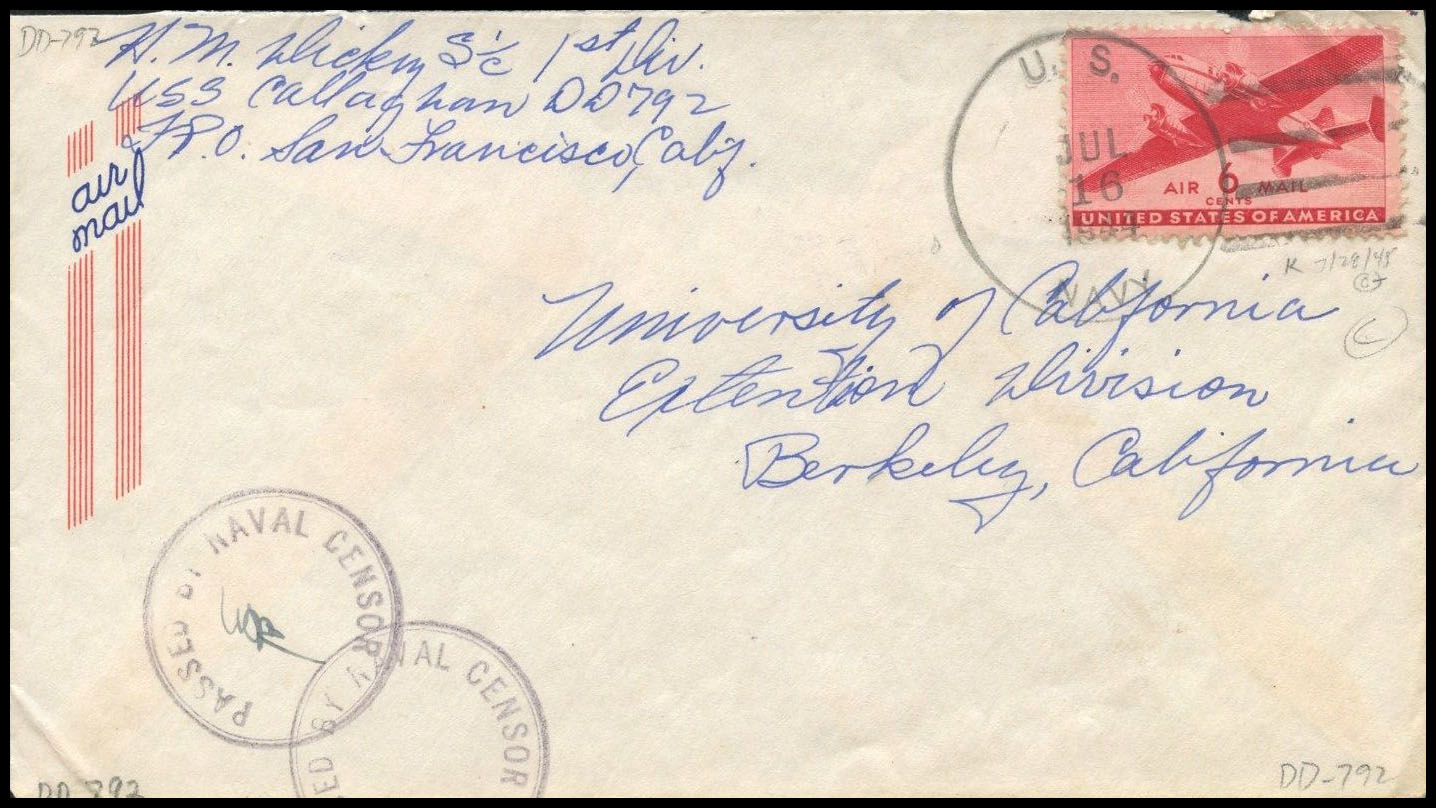 DD-792
H. M. Dickey S1/c 1st Div.
USS Callaghan DD792
F.P.O. San Francisco, Calif.
air
mail
U. S.
JUL
16
1944
NAVY
AIR 6 MAIL
CENTS
UNITED STATES OF AMERICA
K 7/28/45
University of California
Extention Division
Berkeley, California
PASSED BY NAVAL CENSOR
SED BY NAVAL CENSOR
DD 792
DD-792